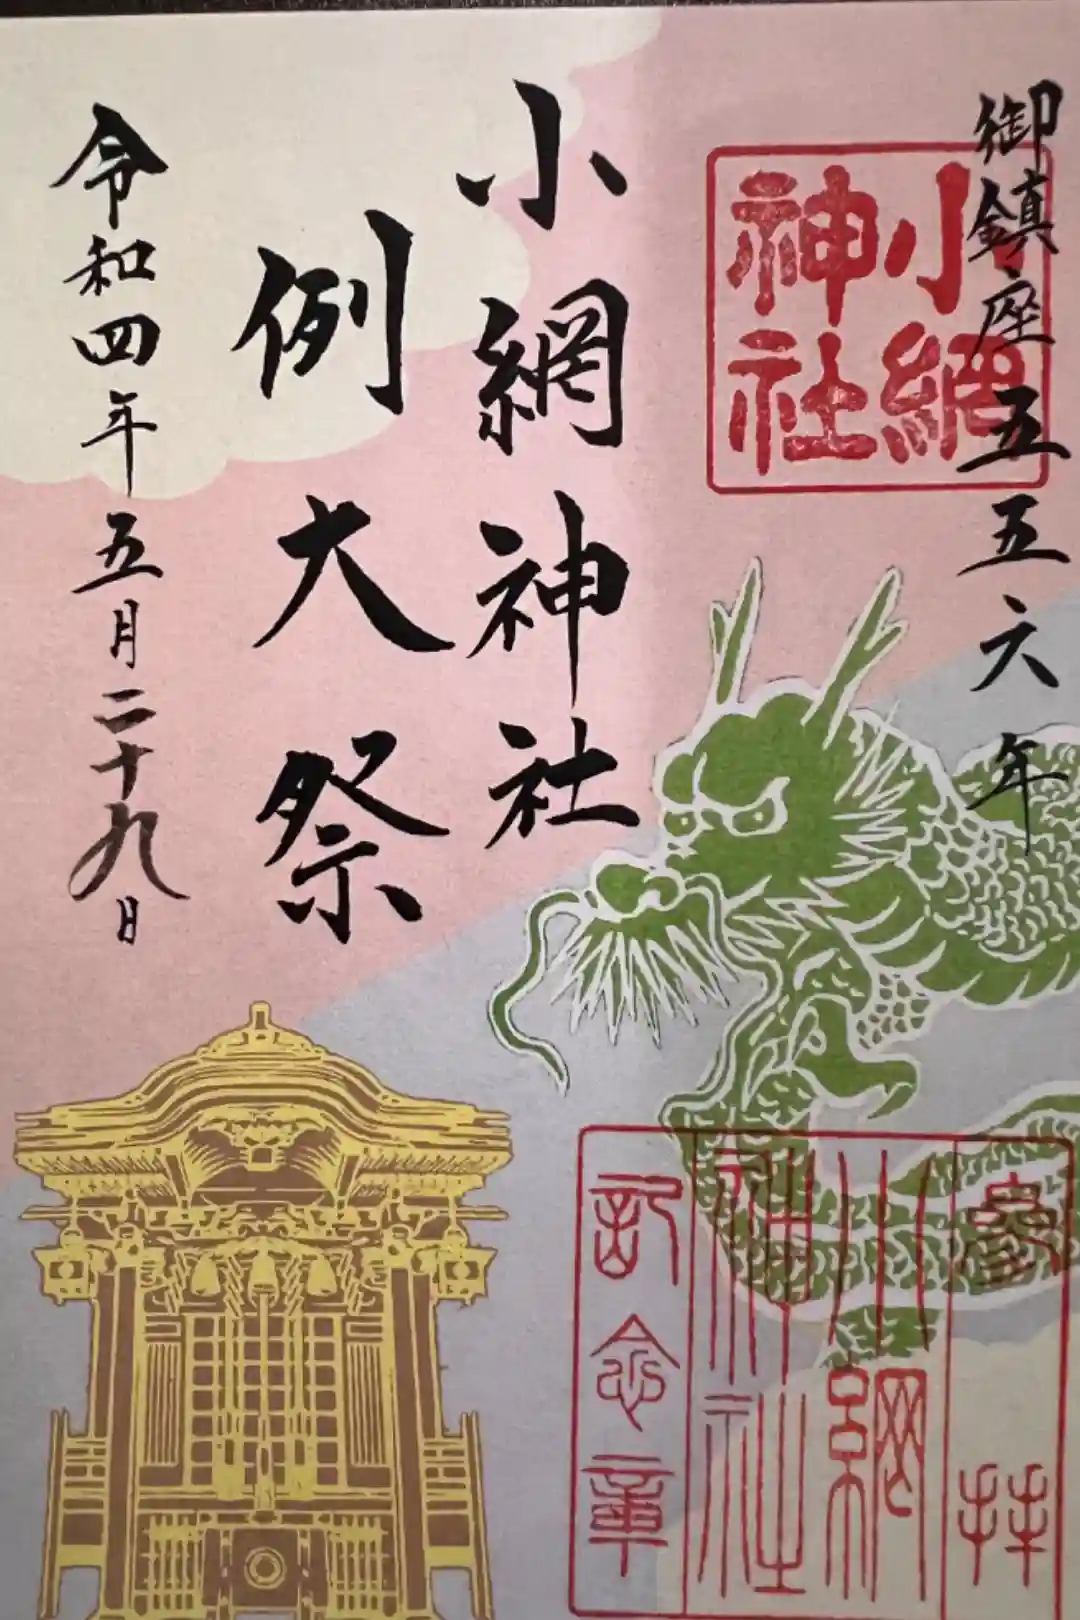 御鎮座五五六年
小網
神社
小網神社
例大祭
令和四年五月二十九日
参拝
小網
神社
記念章